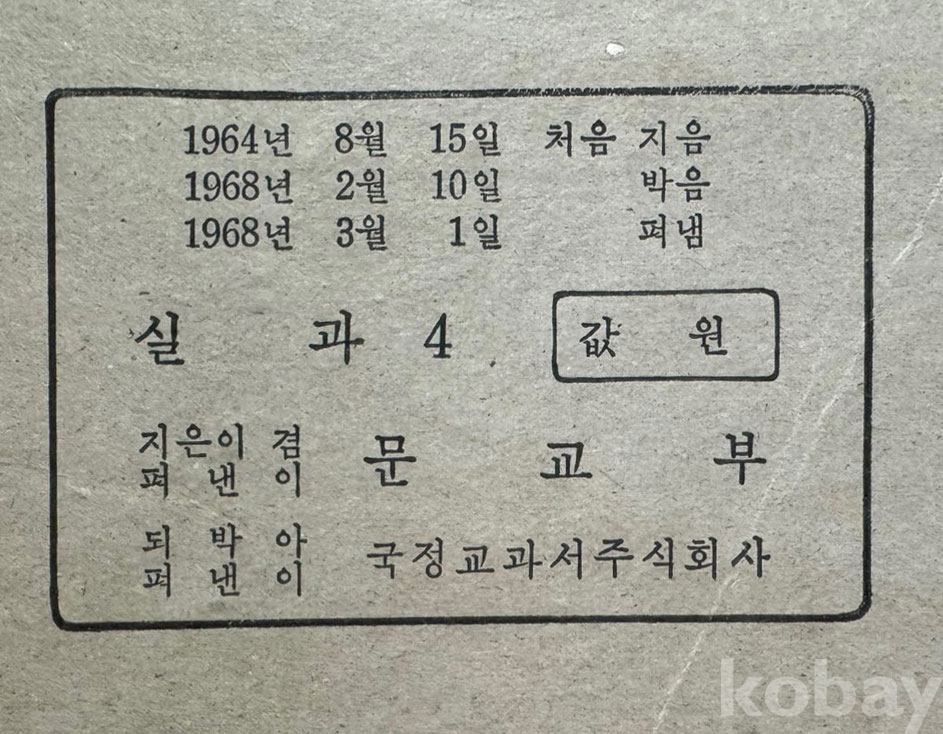 1964년 8월 15일 처음 지음
1968년 2월 10일 박음
1968년 3월 1일 펴냄
실 과 4 값 원
지은이 겸
펴 낸 이
문 교 부
되 박 아
펴 낸 이
국정교과서주식회사
kobay